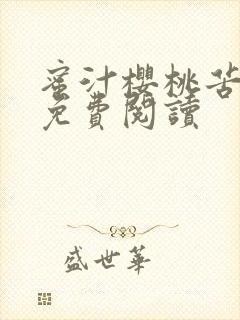 蜜汁櫻桃苦
免費閱讀
盛世華